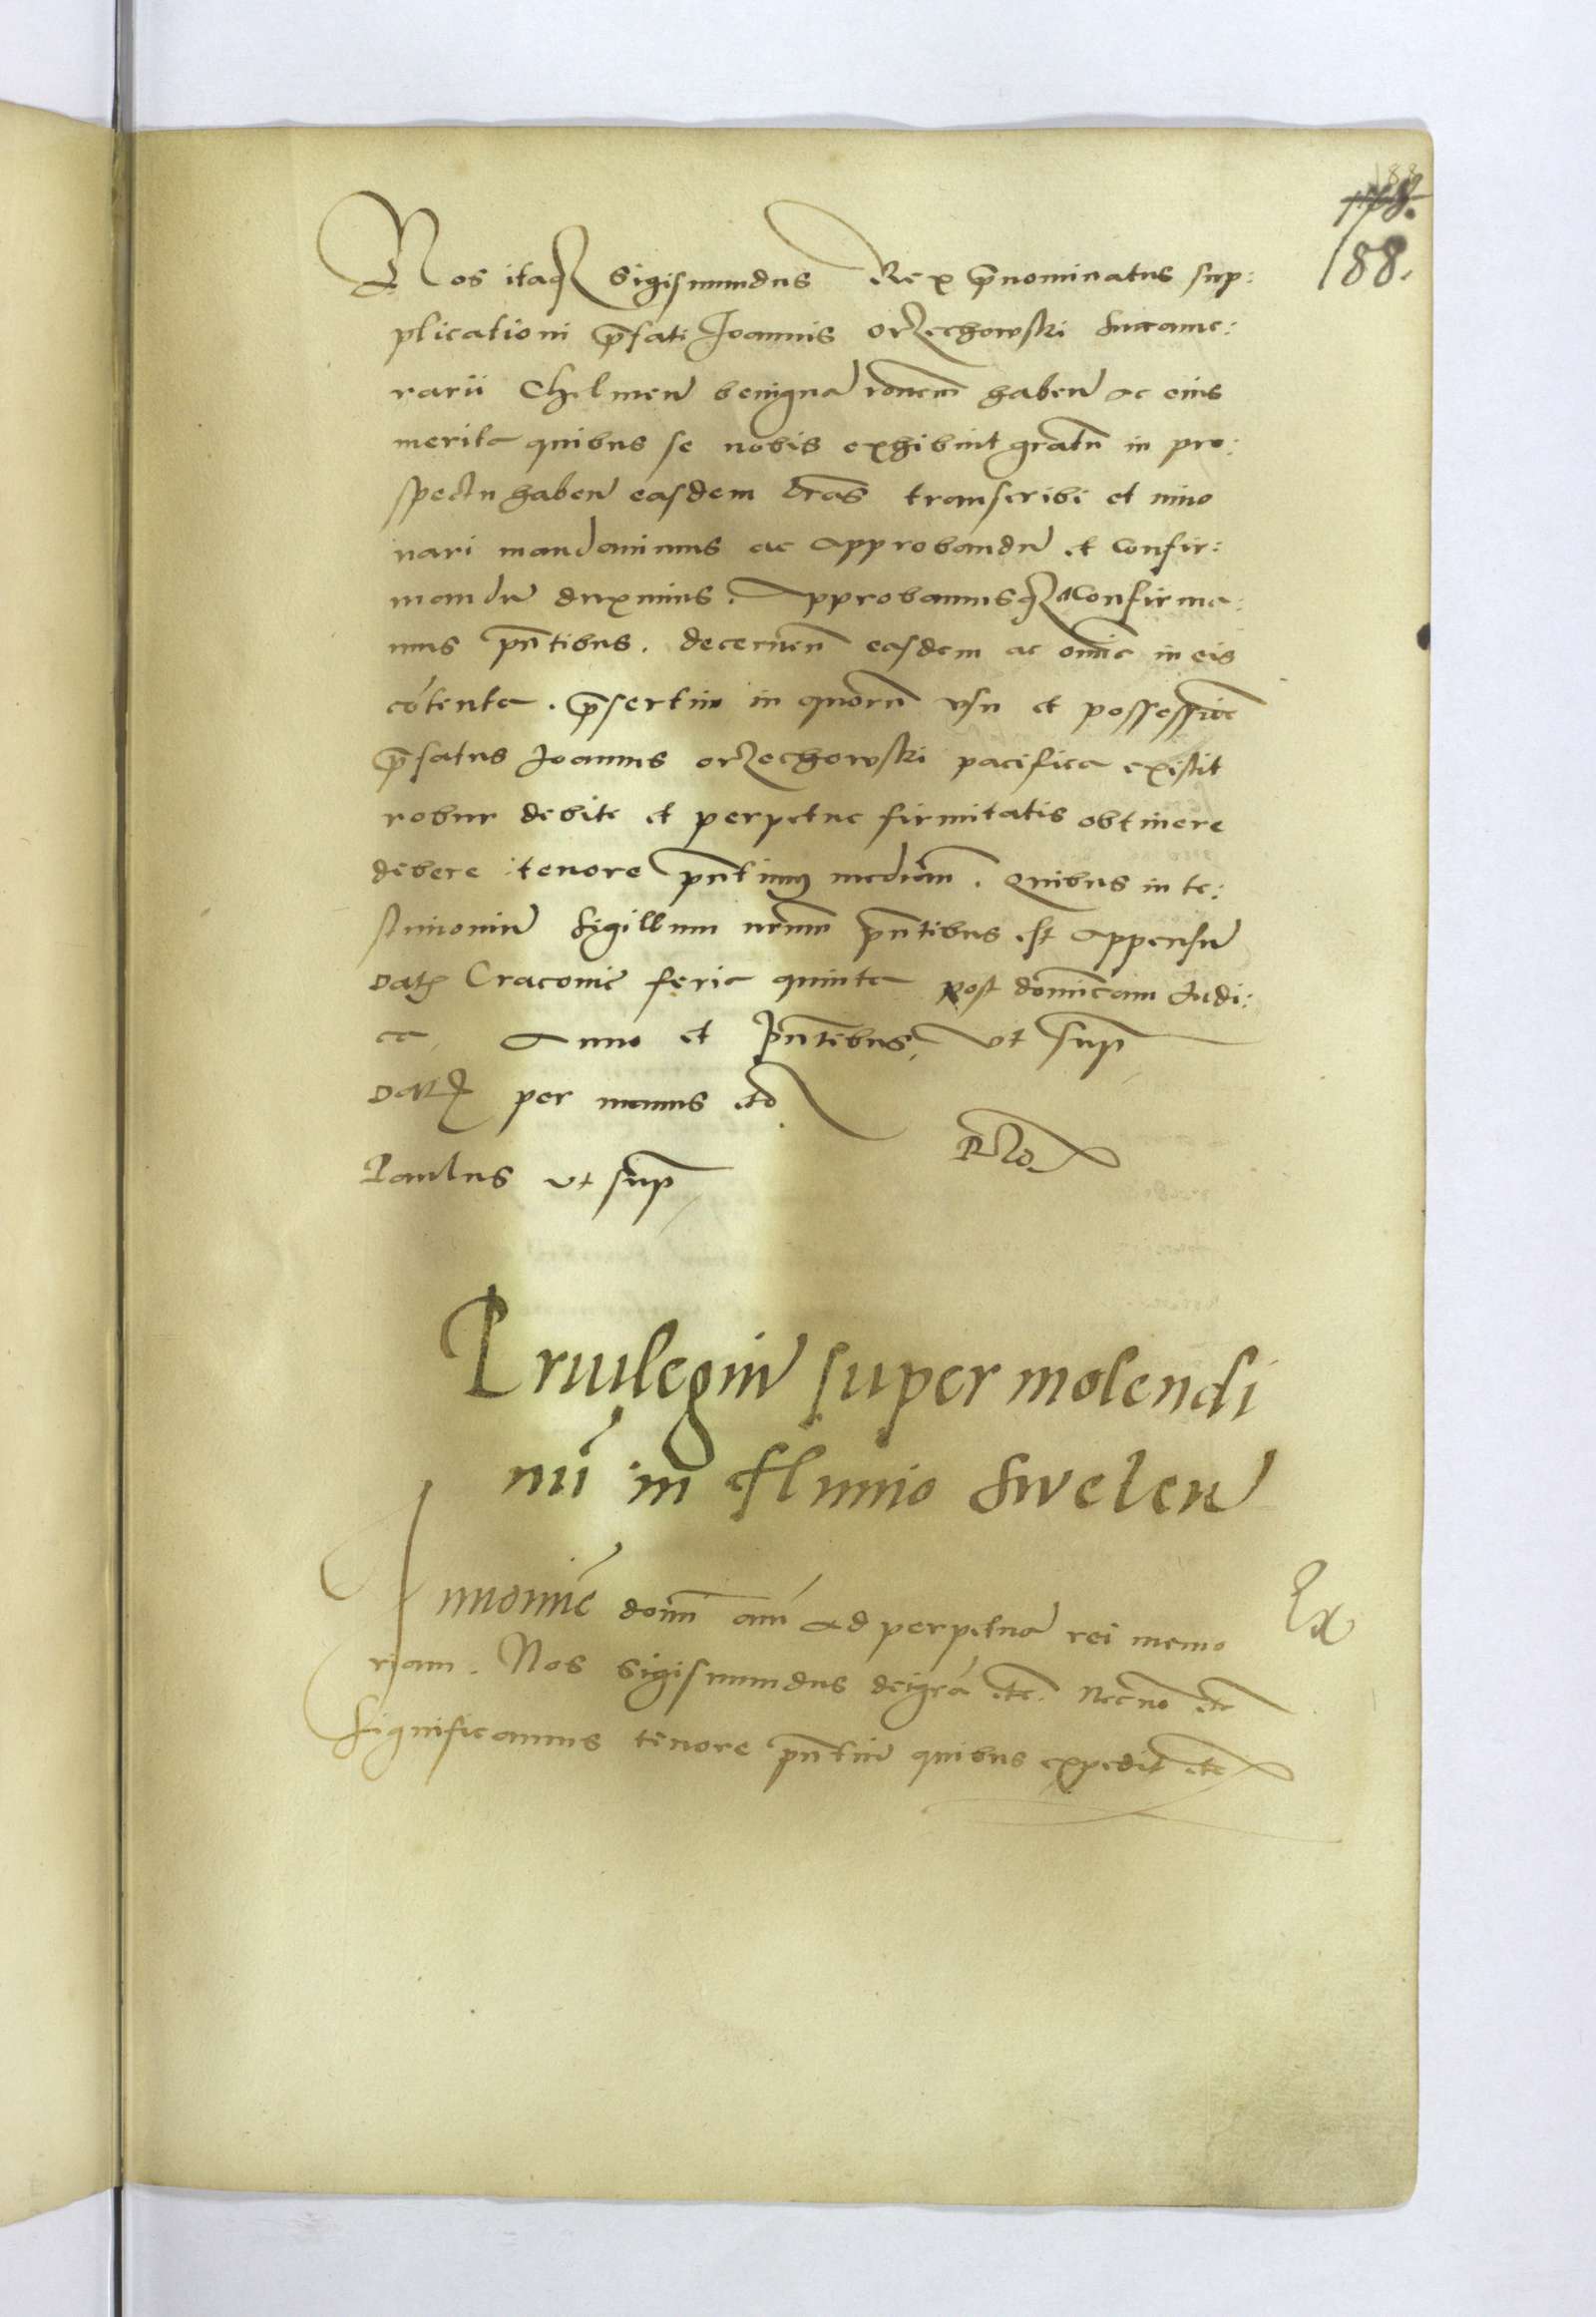 188
178.
188.
Nos itaq Sigismundus Rex p̄nominatus sup:
plicationi p̄fati Joannis orzechowski succame:
rarii Chelmen̄ benignā rōnem haben̄ ac eius
merita quibus se nobis exhibuit gratū in pro:
spectu haben̄ easdem lr̄as transcribi et inno
uari mandauimus ac approbandū et confir:
mandū duximus. Approbamusq Confirma:
mus pn̄tibus. decernen̄ easdem ac omīa in eis
cōtenta. p̄sertim in quorū vsu et possessiōe
p̄fatus Joannes orzechowski pacifica existit
robur debite et perpetue firmitatis obtinere
debere tenore pn̄tium median̄. Quibus in te:
stimoniū Sigillum nr̄um pn̄tibus est appensū
Datꝫ Cracouie feria quinta post domīcam Judi:
ca Anno et pn̄tibus ut supra
Datꝫ per manus etc
Paulus ut supra
Priuilegiū super molendi
nū in fluuio Swelen
In noīe domī am̄ ad perpetuā rei memo
riam. Nos Sigismundus dei gr̄a etc. Necnō etc
Significamus tenore pn̄tiū quibus expedit etc